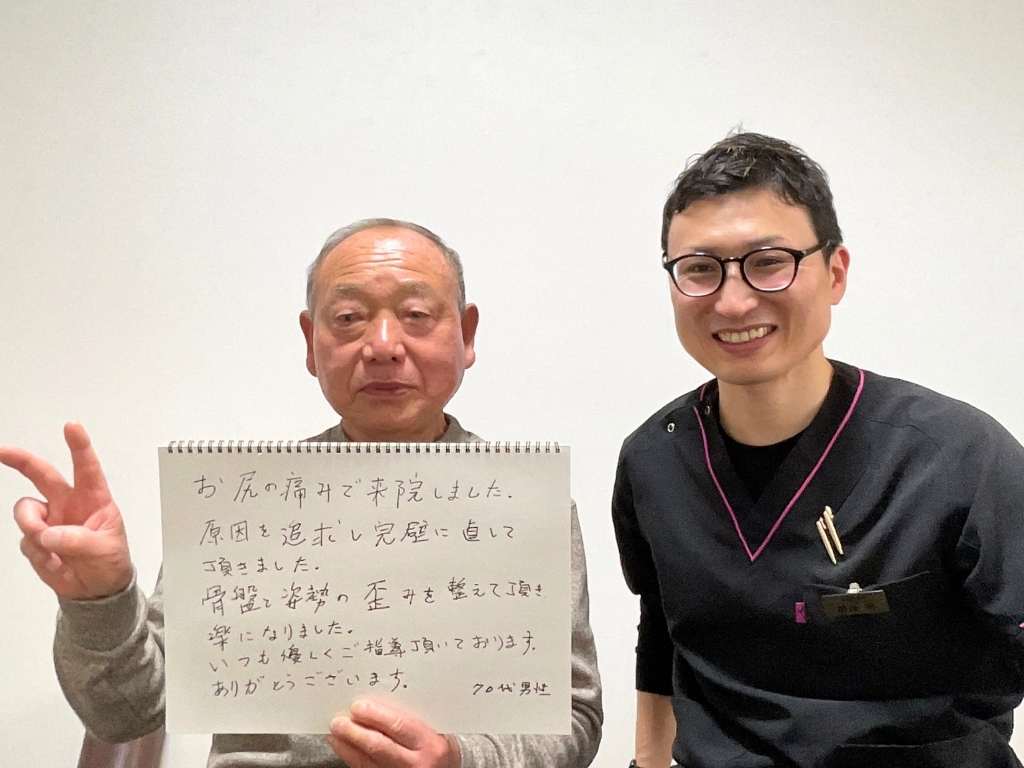 お尻の痛みで来院しました.
原因を追求し完璧に直して
頂きました.
骨盤と姿勢の歪みを整えて頂き
楽になりました.
いつも優しくご指導頂いております.
ありがとうございます.
70代男性